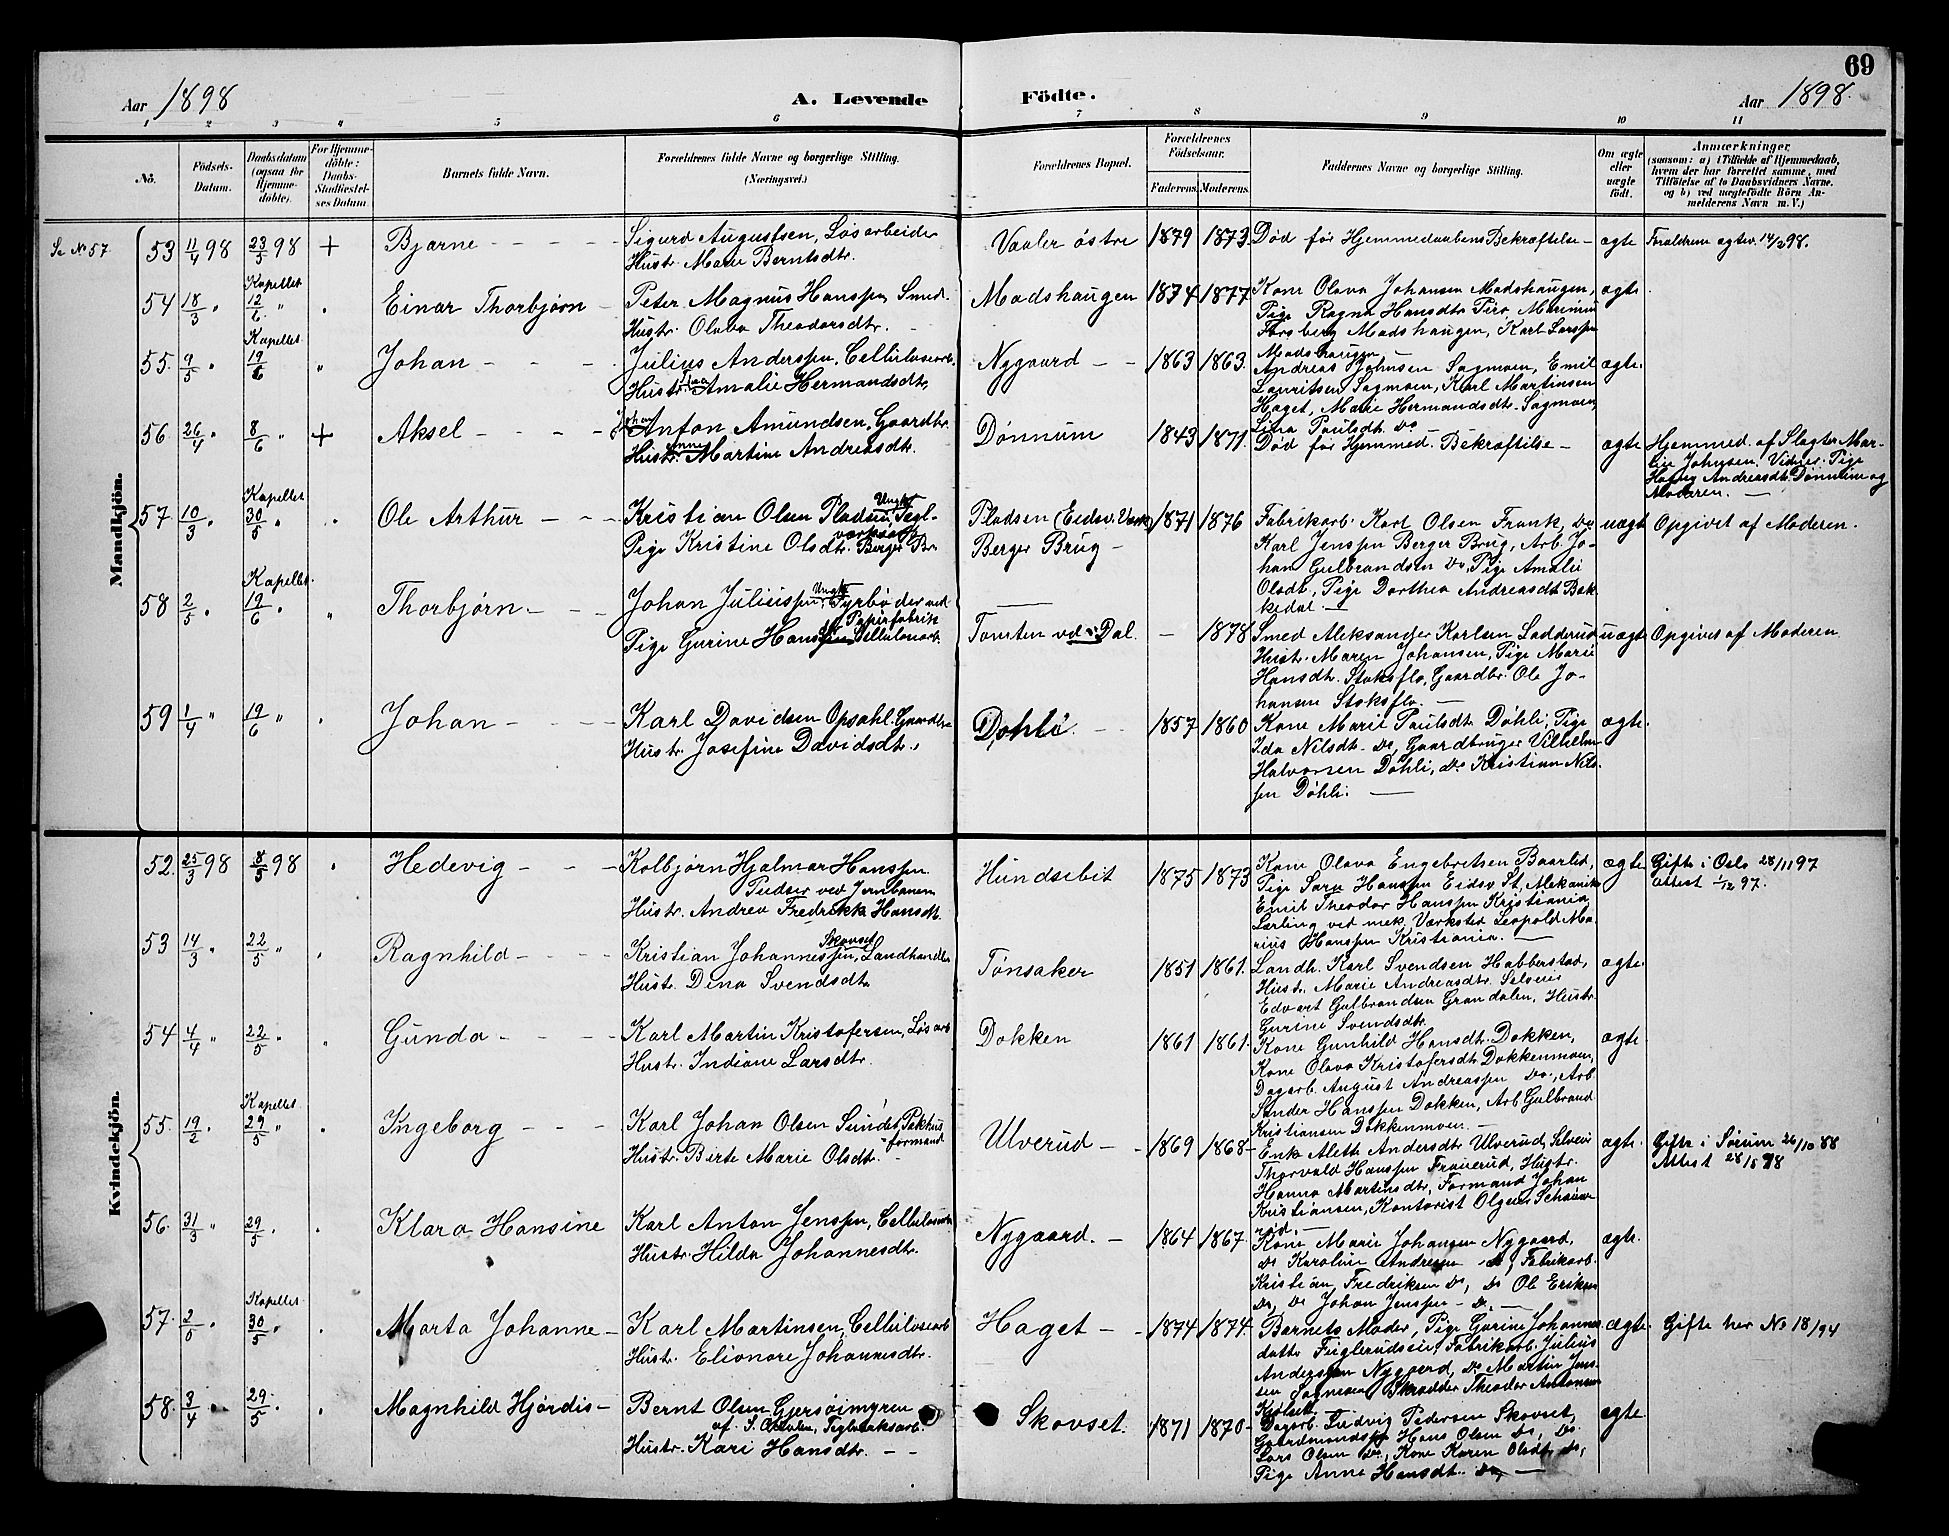 69
Aar 1898
A. Levende Födte.
Aar 1898.
1 2 3 4 5 6 7 8 9 10 11
No.
Födsels-Datum.
Daabsdatum (ogsaa for Hjemme-döbte).
For Hjemme-döbte: Daabs-Stadfæstelses Datum.
Barnets fulde Navn.
Forældrenes fulde Navne og borgerlige Stilling.
(Næringsvei.)
Forældrenes Bopæl.
Forældrenes Födselsaar.
Faderens. Moderens.
Faddernes Navne og borgerlige Stilling.
Om ægte eller uægte födt.
Anmærkninger.
(saasom: a) i Tilfælde af Hjemmedaab,
hvem der har forrettet samme, med
Tilföielse af to Daabsvidners Navne.
og b) ved uægtefödte Börn An-
melderens Navn m. V.)
Mandkjön.
Se No 57
53 11/4 98 23/5 98 + Bjarne - - - - Sigurd Augustsen, Løsarbeider
Hustr. Marie Berntsdtr.
Vaaler östre 1879 1873 Død før Hjemmedaabens Bekræftelse - ægte
54 18/3 " Kapellet 12/6 " Einar Thorbjørn - Peter Magnus Hanssen, Smed.
Hustr. Olava Theodorsdtr.
Madshaugen 1874 1877 Kone Olava Johansen Madshaugen, ægte
Pige Ragna Hansdtr
Forsberg Madshaugen, Karl Larssen
Madshaugen -
55. 9/5 " Kapellet 19/6 " Johan - - - Julius Anderssen, Cellulosearb.
Hustr. Amalie Hermandsdtr.
Nygaard - - 1863 1863. Andreas Johnsen Sagmoen, Emil ægte.
Lauritsen Sagmoen, Karl Martinsen
Haget, Marie Hermandsdtr. Sagmoen,
Lina Paulsdtr. Do -
56. 26/4 " 8/6 " + Aksel - - - - Johan Anton Amundsen, Gaardbr.
Hustr. Anne Martine Andreasdtr.
Dønnum 1843 1871. Død før Hjemmed. Bekræftelse - ægte
Hjemmed. af Slagter Mar-
Johnsen. Vidner: Pige
Andreasdtr. Dønnum og
Moderen. -
57 10/3 " Kapellet 30/5 " Ole Arthur - - - Kristian Olsen Pladsen, Ungk. Tegl-
Pige Kristine Olsdtr. Berger Br.
Pladsen (Eidsv. Værk)
Berger Brug -
1871 1876 Fabrikarb. Karl Olsen Frank, Do uægt Opgivet af Moderen.
Karl Jenssen Berger Brug, Arb. Jo-
han Gulbrandsen Do, Pige Amalie
Olsdt, Pige Dorthea Andreasdt Bak-
kedal. -
58 2/5 " Kapellet 19/6 " Thorbjørn - - - Johan Juliussen, Ungk. Fyrbøder ved
Papirfabrik
Pige Gurine Hanssen Cellulosearb.
Tomten ved Dal. - 1878 Smed Aleksander Karlsen Ladderud uægt Opgivet af Moderen
Hustr. Maren Johansen, Pige Marie
Hansdtr. Stoksflo, Gaardbr. Ole Jo-
hansen Stoksflo. -
59 1/4 " 19/6 " Johan - - - Karl Davidsen Opsahl. Gaardbr.
Hustr. Josefine Davidsdtr.
Døhli. - - 1857 1860 Kone Marie Paulsdt. Døhli, Pige ægte.
Ida Nilsdt. Do, Gaardbruger Vilhelm
Halvorsen Döhli, Do Kristian Nils-
sen Döhli. -
Kvindekjön.
52. 25/3 98 8/5 98 Hedevig - - - Kolbjørn Hjalmar Hanssen.
Pudser ved Jernbanen
Hustr. Andrea Fredrikke Hansdt.
Hundsebit 1875 1873 Kone Olava Engebretsen Baarlid, ægte Gifte i Oslo 28/11 97
Attest 1/12 97.
Pige Sara Hanssen Eidsv St, Mekanik.
Emil Theodor Hanssen Kristiania,
Lærling ved mek. Værksted Leopold Ma-
rius Hanssen Kristiania. -
53 14/3 " 22/5 " Ragnhild - - - - Kristian Johannessen, Skovset Landhandler
Hustr. Dina Svendsdtr.
Tønsaker 1851 1861. Landh. Karl Svendsen Habberstad, ægte.
Hustr. Marie Andreasdtr.
Edvart Gulbrandsen Grandalen, Hustr.
Gurine Svendsdtr.
54 4/4 " 22/5 " Gunda - - - - Karl Martin Kristofersen, Løsarb
Hustr. Indiane Larsdtr.
Dokken 1861 1861. Kone Gunhild Hansdt. Dokken, ægte
Kone Olava Kristofersdt Dokkenmoen,
Dagarb. August Andreassen Do, Arb.
Sander Hanssen Dokken, Arb Gulbrand
Kristiansen Dokkenmoen. -
55. 19/2 Kapellet 29/5 " Ingeborg - - - Karl Johan Olsen Sundet, Pakhus-
formand
Hustr. Birte Marie Olsdtr. -
Ulverud - - 1869 1868 - Enk. Aleth. Andersdt Ulverud, ægte. Gifte i Sørum 26/10 88
Attest 28/5 98
Thorvald Hanssen Frauerud, Hustr.
Hanna Martinsdtr, Formand Johan
Kristiansen, Kontorist
56. 31/3 " 29/5 . Klara Hansine Karl Anton Jenssen, Cellulosearb
Hustr. Hilda Johannesdtr.
Nygaard. - 1864 1867. Kone Marie Johansen Nygaard, ægte.
Do Karoline Andresen Do, Fabrikarb.
Kristian Fredriksen Do, Do Ole Eriksen
Do, Do Johan Jenssen - Do. -
57. 2/5 " Kapellet 30/5 " Marta Johanne - Karl Martinsen, Cellulosearb
Hustr. Elionore Johannesdtr.
Haget - - 1874 1874. Barnets Moder, Pige Gurine Johannes- ægte. Gifte her No 18/94
datter Fuglerudseie, Fabrikarb. Julius
Anderssen Nygaard, Do Martin Jens-
sen Sagmoen, Skrædder Theodor Antonsen
58. 3/4 " 29/5 . Magnhild Hjördis - Bernt Olsen Gjersöimyren
Teglværksarb.
Hustr. Kari Hansdtr. - -
Skovset. 1871 1870 - Dagarb. Ludvig Pedersen Skovset, ægte
Gaardmandss. Hans Olsen Do, Do.
Lars Olsen Do, Kone Karen Olsdt. Do,
Pige Anne Hansdt. Do, -